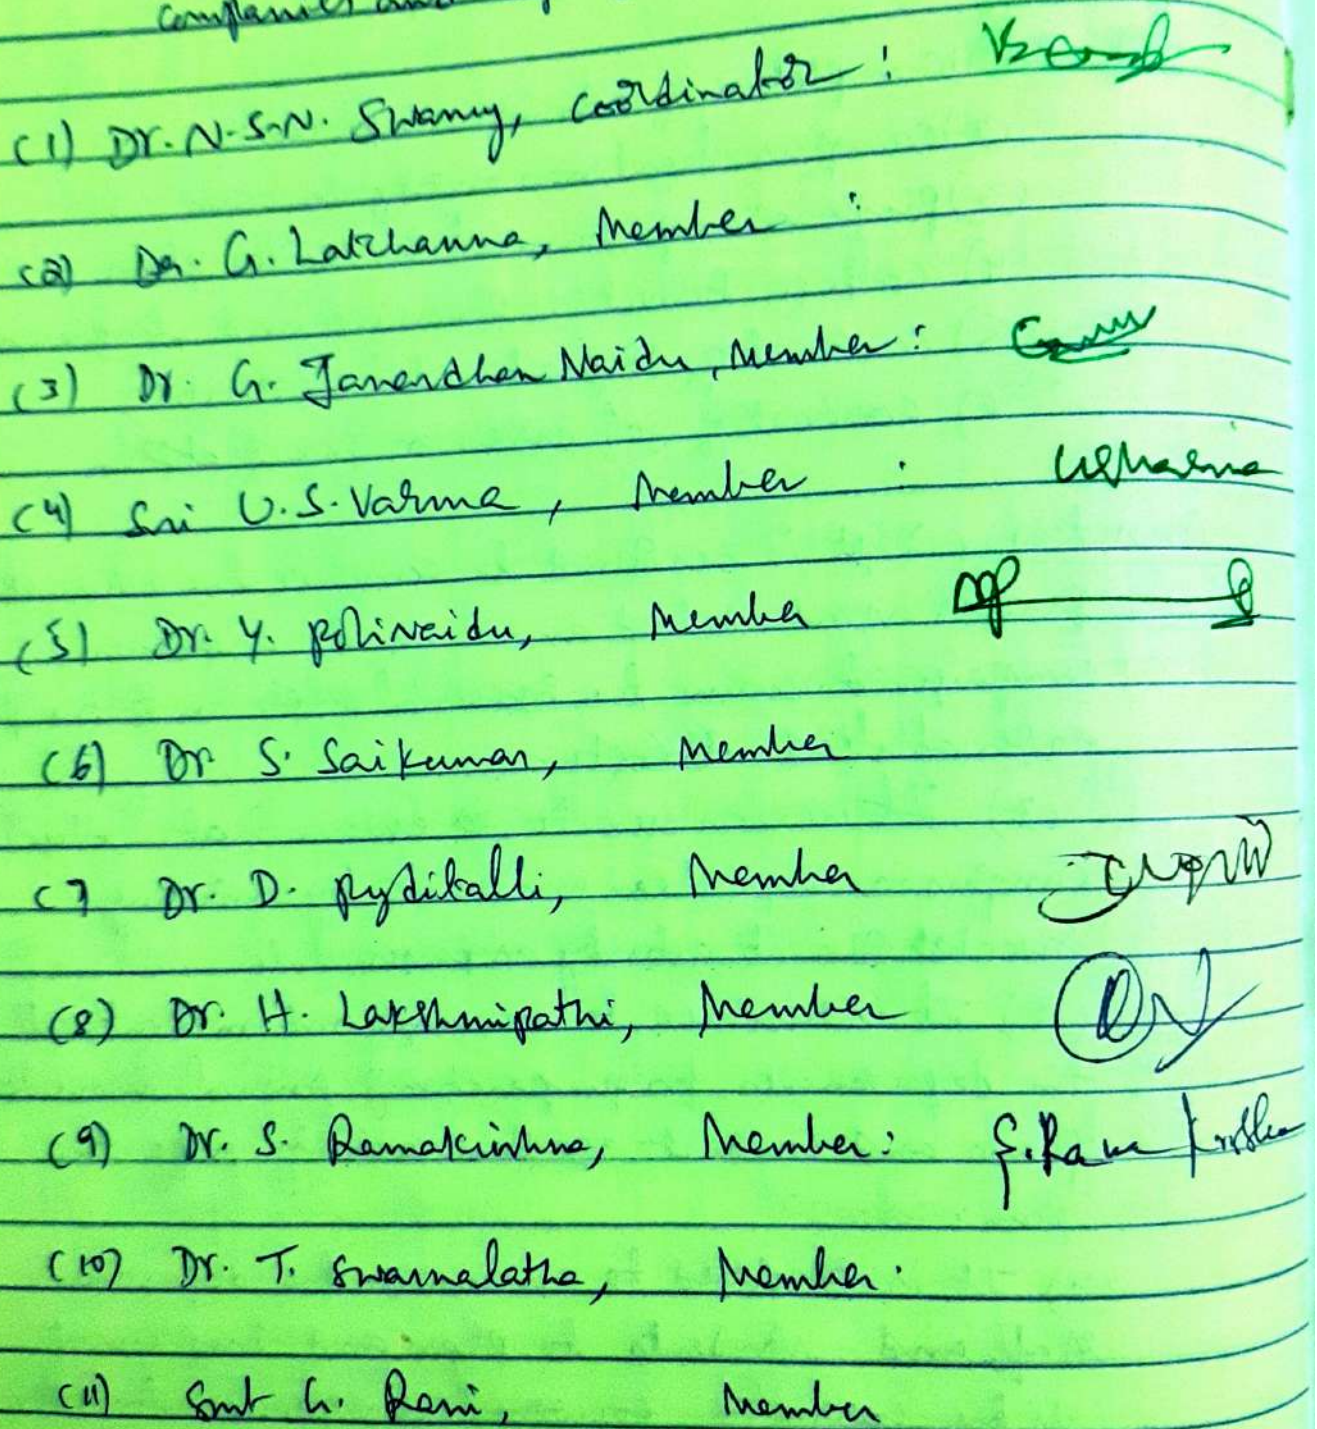 companies and
(1) Dr. N.S.N. Swamy, Coordinator :
(2) Dr. G. Latchanna, Member :
(3) Dr. G. Janardhan Naidu, Member :
(4) Sri U.S. Varma, Member : USVarma
(5) Dr. Y. Polinaidu, Member
(6) Dr S. Saikumar, Member
(7 Dr. D. Pyditalli, Member
(8) Dr. H. Lakshmipathi, Member
(9) Dr. S. Ramakrishna, Member : S. Rama Krishna
(10) Dr. T. Swarnalatha, Member.
(11) Smt G. Rani, Member